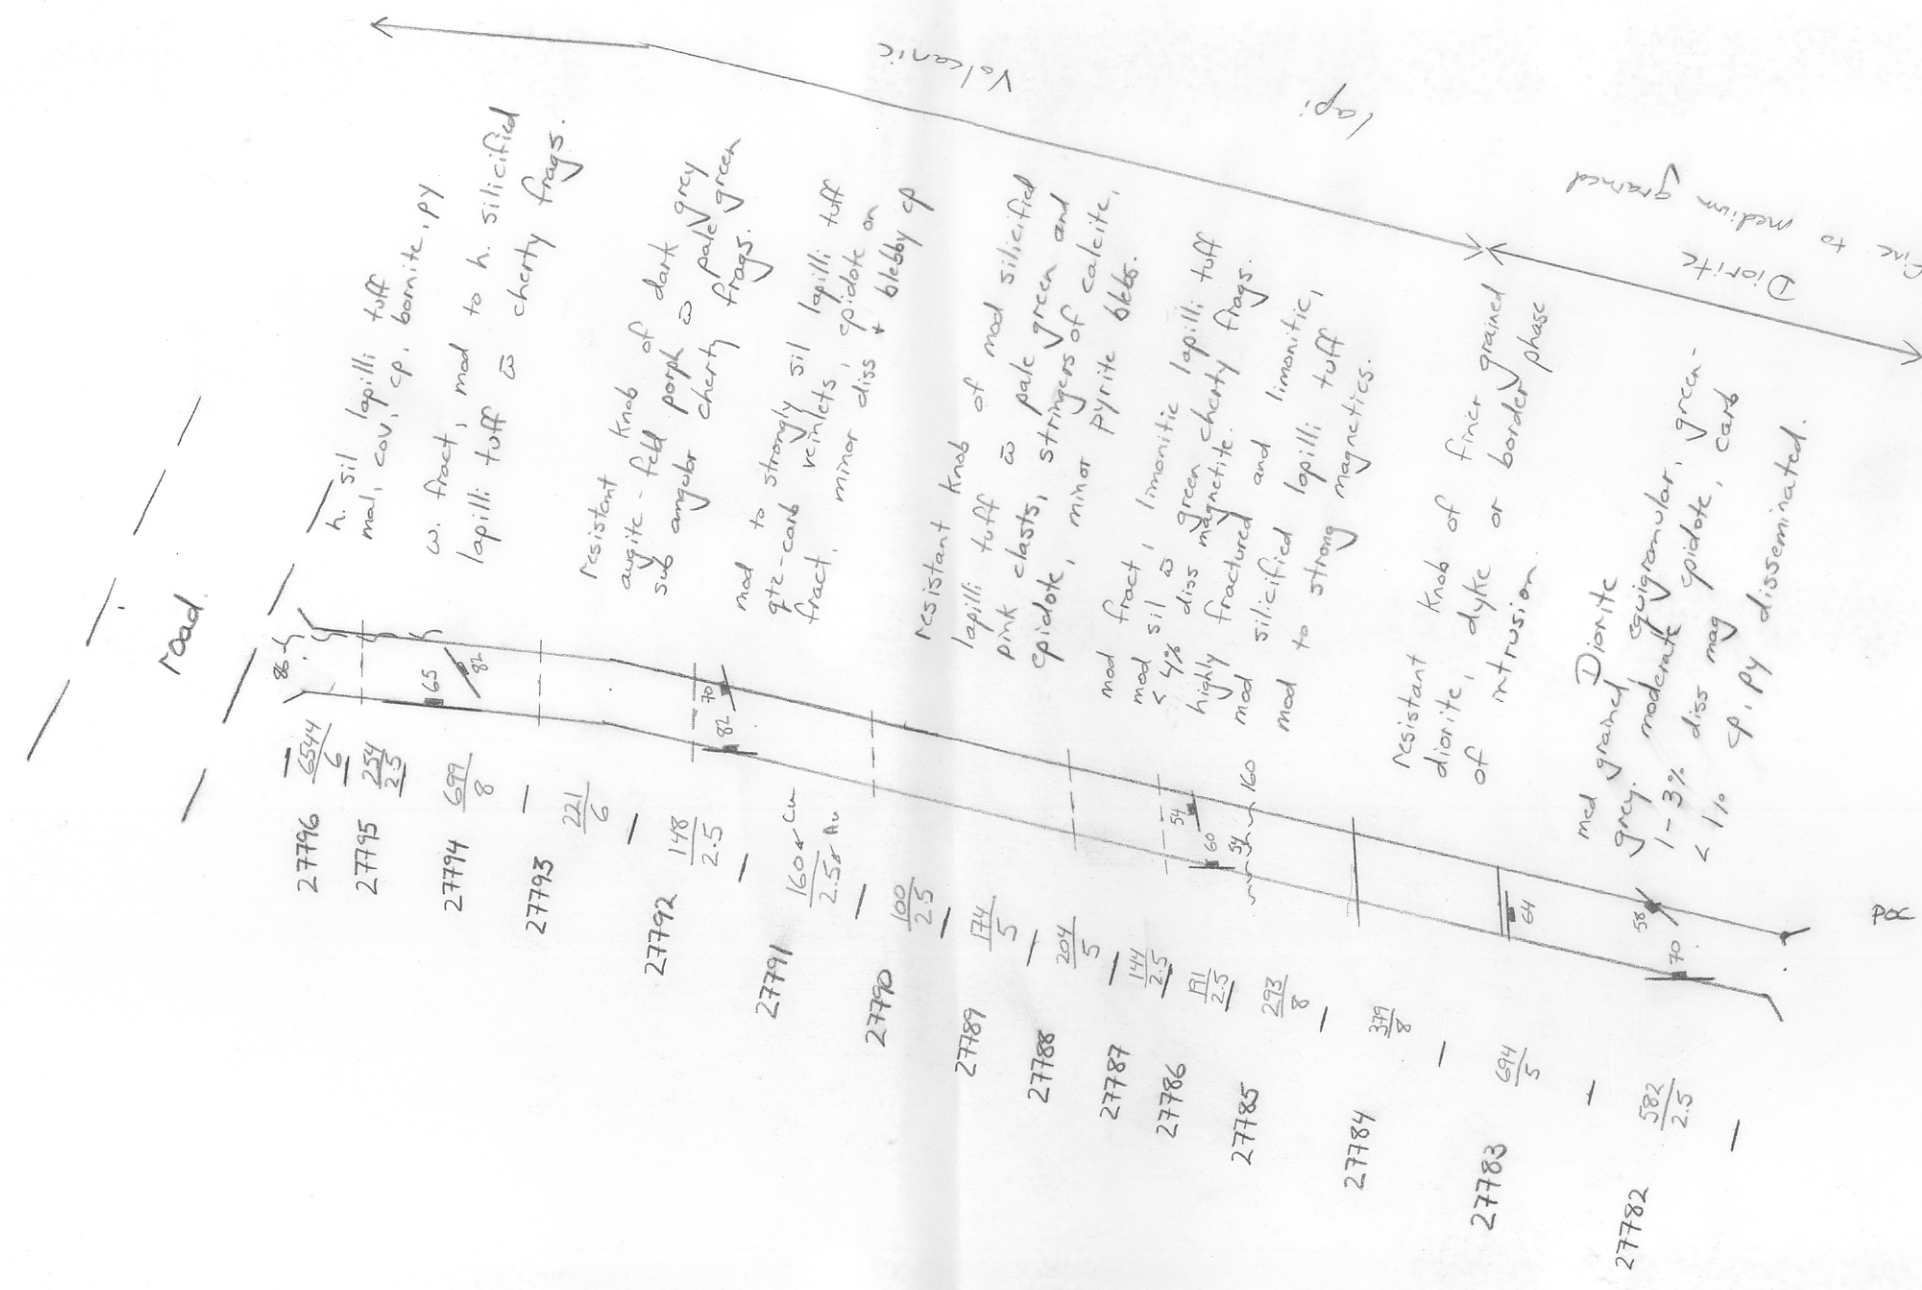 Volcanic
lapi
fine to
medium grained
Diorite
road.
h. sil lapilli tuff
mal, cov, cp, bornite, py
w. fract, mod to h. silicified
lapilli tuff w̄ cherty frags.
resistant knob of dark grey
augite-feld porph w̄ pale green
sub angular cherty frags.
mod to strongly sil lapilli tuff
qtz-carb veinlets, epidote on
fract, minor diss + blebby cp
resistant knob of mod silicified
lapilli tuff w̄ pale green and
pink clasts, stringers of calcite,
epidote, minor pyrite blebs.
mod fract, limonitic lapilli tuff
mod sil w̄ green cherty frags.
< 4% diss magnetite.
highly fractured and limonitic,
mod silicified lapilli tuff
mod to strong magnetics.
resistant knob of finer grained
diorite, dyke or border phase
of intrusion.
Diorite
med grained, equigranular, green-
grey. moderate epidote, carb
1-3% diss mag
< 1% cp, py disseminated.
86
65
82
70
82
54
60
54
160
64
58
70
POC
6544
6
254
2.5
699
8
221
6
148
2.5
160 Cu
2.5 Au
100
2.5
174
5
204
5
144
2.5
191
2.5
293
8
379
8
694
5
582
2.5
27796
27795
27794
27793
27792
27791
27790
27789
27788
27787
27786
27785
27784
27783
27782